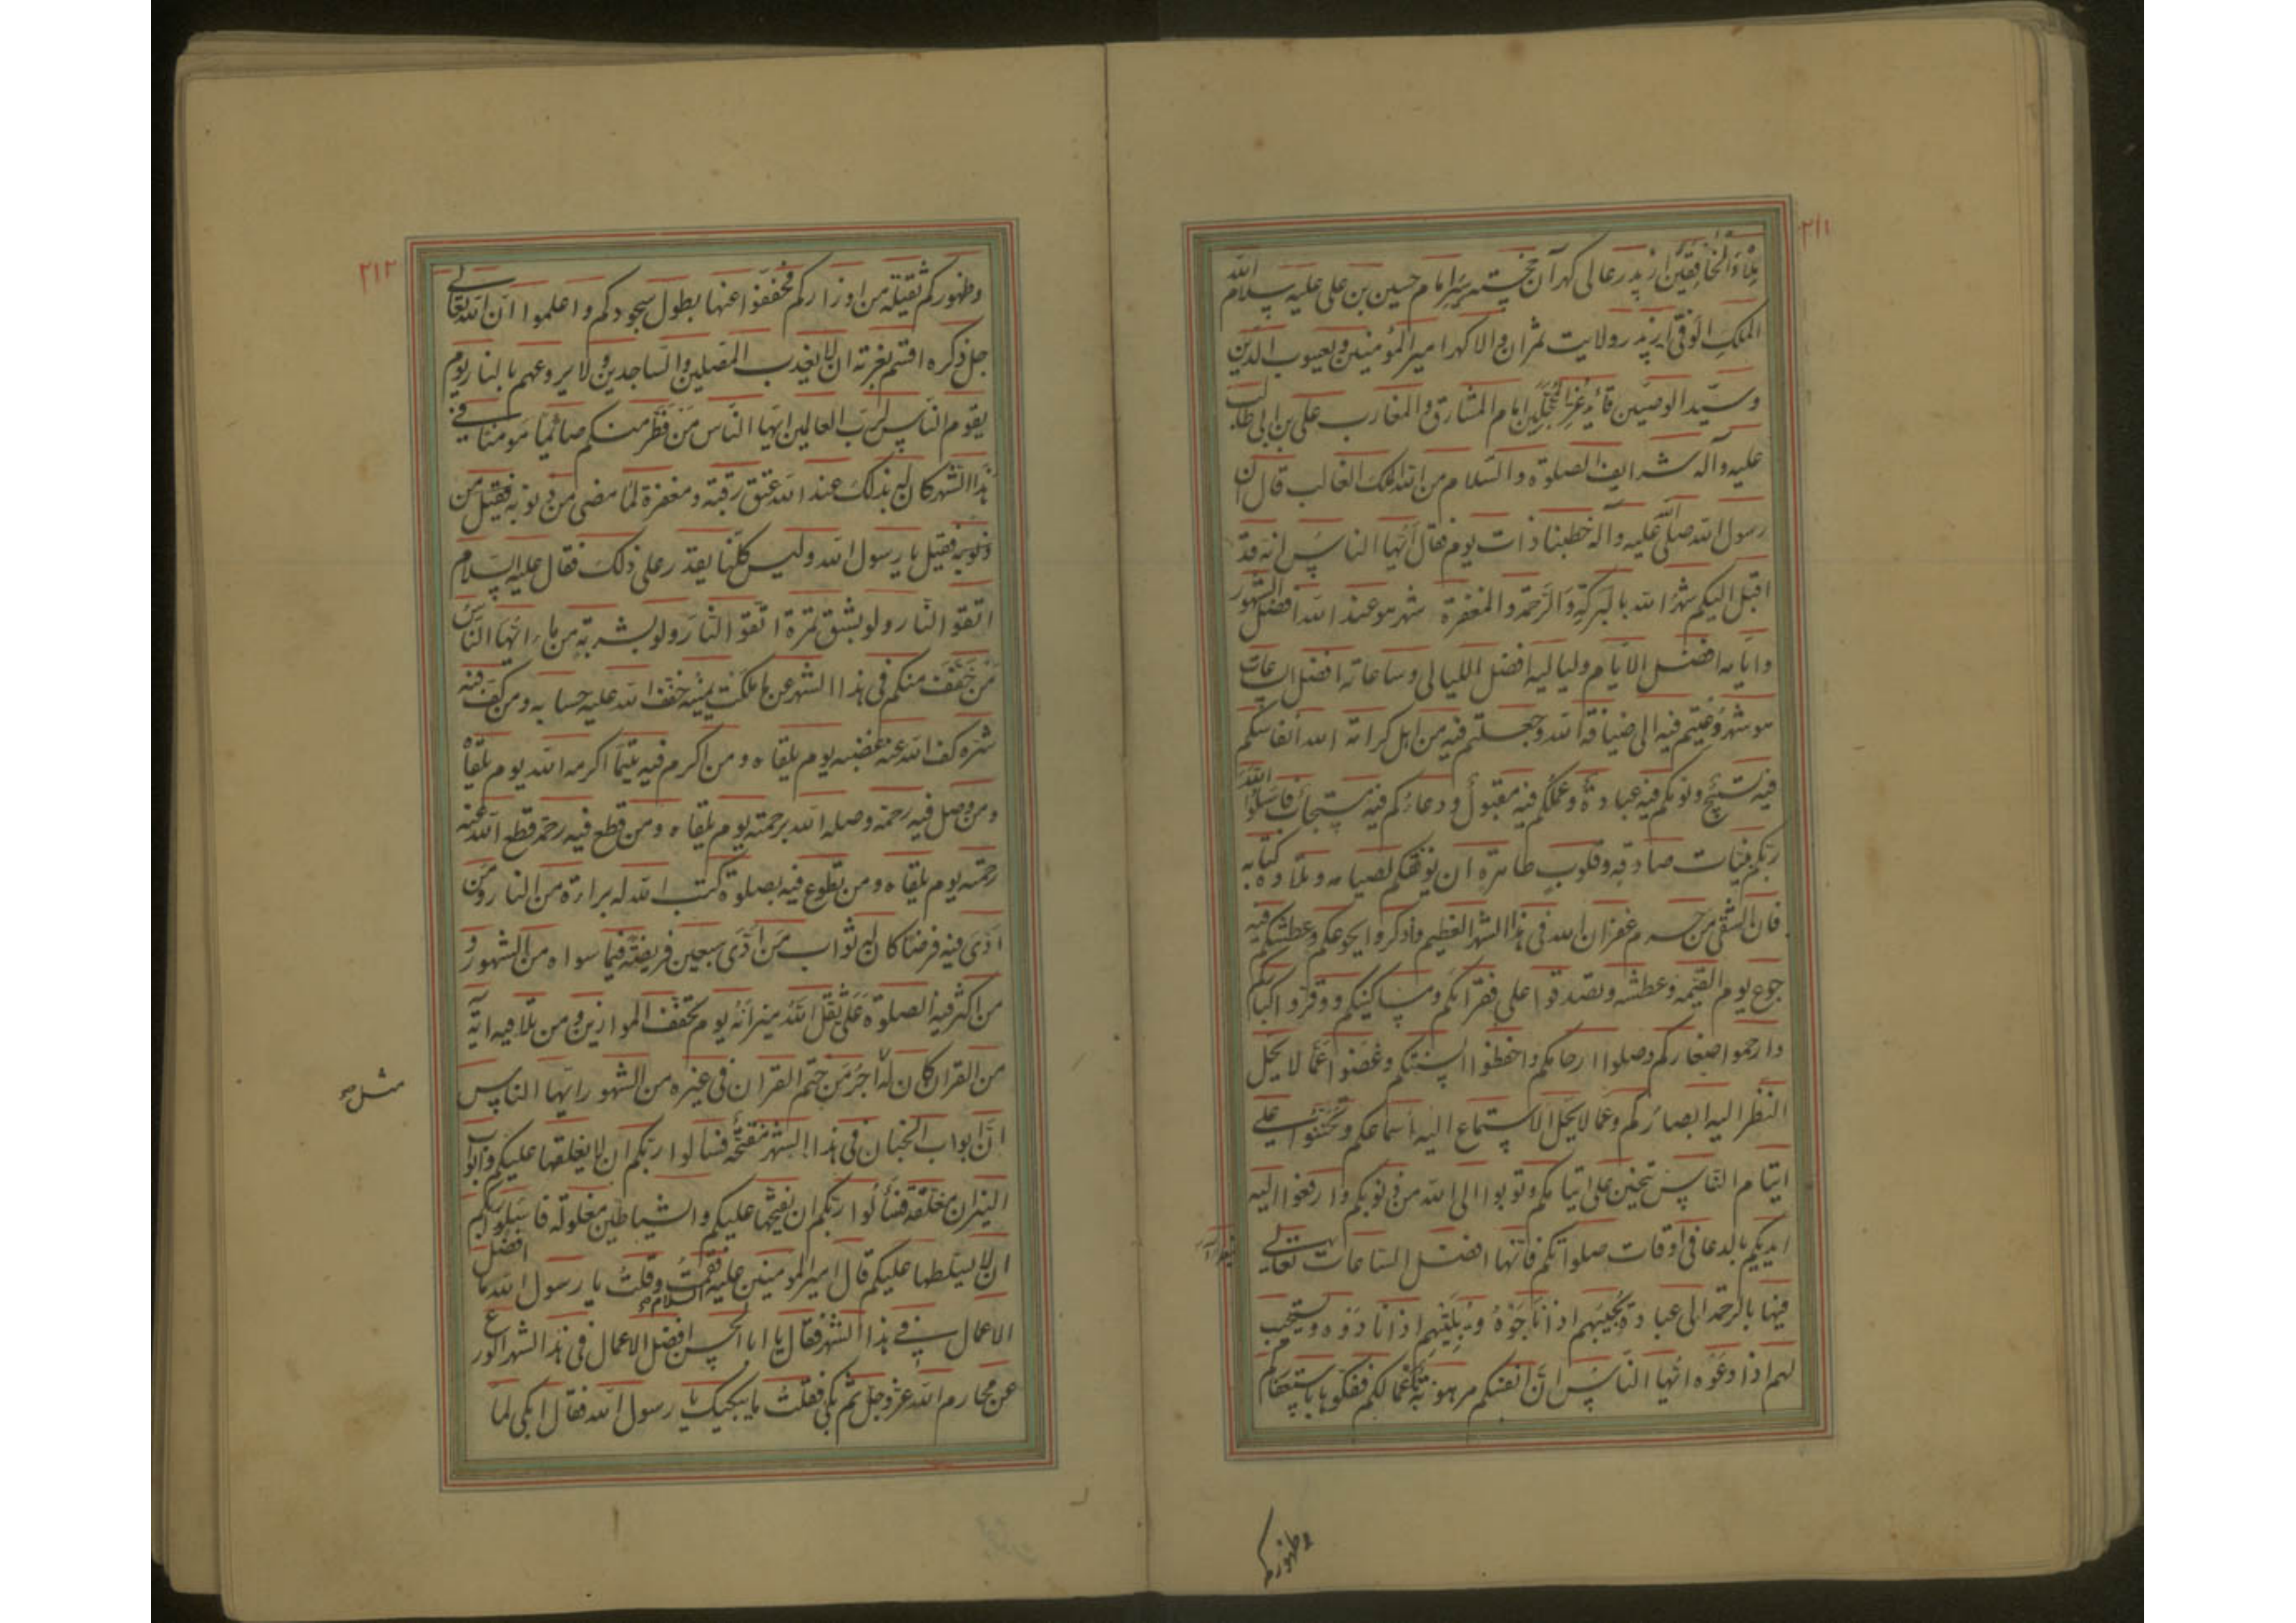 ۲۱۱
بلاء والخافقین از پدر عالی کهر آن خجسته سیر امام حسین بن علی علیه سلام الله
الملک الوفی از پدر ولایت ثمران والا کهر امیر المؤمنین و یعسوب الدین
و سید الوصیین قائد غر المحجلین امام المشارق والمغارب علی بن ابی طالب
علیه وآله شرایف الصلوة والسلام من الله الملک الغالب قال ان
رسول الله صلی الله علیه وآله خطبنا ذات یوم فقال أیها الناس انه قد
اقبل الیکم شهر الله بالبرکة والرحمة والمغفرة شهر هو عند الله افضل الشهور
وایامه افضل الایام ولیالیه افضل اللیالی وساعاته افضل الساعات
هو شهر دعیتم فیه الی ضیافة الله وجعلتم فیه من اهل کرامة الله أنفاسکم
فیه تسبیح ونومکم فیه عبادة وعملکم فیه مقبول ودعاؤکم فیه مستجاب فاسئلوا الله
ربکم بنیات صادقة وقلوب طاهرة ان یوفقکم لصیامه وتلاوة کتابه
فان الشقی من حرم غفران الله فی هذا الشهر العظیم واذکروا بجوعکم وعطشکم فیه
جوع یوم القیمه وعطشه وتصدقوا علی فقرائکم ومساکینکم ووقروا کبارکم
وارحموا صغارکم وصلوا ارحامکم واحفظوا السنتکم وغضوا عما لا یحل
النظر الیه ابصارکم وعما لا یحل الاستماع الیه أسماعکم وتحننوا علی
ایتام الناس یتحنن علی ایتامکم وتوبوا الی الله من ذنوبکم وارفعوا الیه
ایدیکم بالدعا فی اوقات صلواتکم فانها افضل الساعات تعالی
فیها بالرحمة الی عباده یجیبهم اذا ناجوه ویلبیهم اذا نادوه ویستجیب
لهم اذا دعوه ایها الناس ان انفسکم مرهونة بأعمالکم ففکوها باستغفارکم
وظهورکم
۲۱۲
وظهورکم ثقیلة من اوزارکم فخففوا عنها بطول سجودکم واعلموا ان الله تعالی
جل ذکره اقسم بعزته ان لا یعذب المصلین والساجدین ولا یروعهم بالنار یوم
یقوم الناس لرب العالمین ایها الناس من فطر منکم صائما مومنا فی
هذا الشهر کان له بذلک عند الله عتق رقبة ومغفرة لما مضی من ذنوبه فقیل من
ذنوبه فقیل یا رسول الله ولیس کلنا یقدر علی ذلک فقال علیه السلام
اتقوا النار ولو بشق تمرة اتقوا النار ولو بشربة من ماء ایها الناس
من خفف منکم فی هذا الشهر عن ما ملکت یمینه خفف الله علیه حسابه ومن کف فیه
شره کف الله عنه غضبه یوم یلقاه ومن اکرم فیه یتیما اکرمه الله یوم یلقاه
ومن وصل فیه رحمه وصله الله برحمته یوم یلقاه ومن قطع فیه رحمه قطع الله عنه
رحمته یوم یلقاه ومن تطوع فیه بصلوة کتب الله له براءة من النار ومن
أدی فیه فرضا کان له ثواب من أدی سبعین فریضة فیما سواه من الشهور و
من اکثر فیه الصلوة علی ثقل الله میزانه یوم تخفف الموازین ومن تلا فیه ایة
من القران کان له اجر من ختم القران فی غیره من الشهور ایها الناس
مثل صح
ان ابواب الجنان فی هذا الشهر مفتحة فسالوا ربکم ان لا یغلقها علیکم وابواب
النیران مغلقة فسألوا ربکم ان لا یفتحها علیکم والشیاطین مغلولة فاسئلوا ربکم
ان لا یسلطها علیکم قال امیر المومنین علیه السلام فقمت وقلت یا رسول الله ما افضل
الاعمال فی هذا الشهر فقال یا ابا الحسن افضل الاعمال فی هذا الشهر الورع
عن محارم الله عز وجل ثم بکی فقلت ما یبکیک یا رسول الله فقال ابکی لما